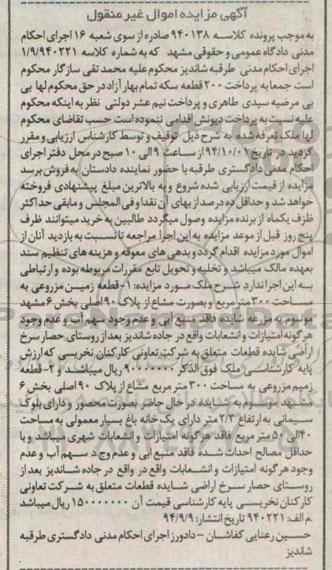 آگهی مزایده اموال غیر منقول
به موجب پرونده کلاسه ۹۴۰۱۳۸ صادره از سوی شعبه ۱۶ اجرای احکام
مدنی دادگاه عمومی و حقوقی مشهد که به شماره کلاسه ۱/۹/۹۴۰۲۲۱
اجرای احکام مدنی طرقبه شاندیز محکوم علیه محمد تقی سازگار محکوم
است جمعا به پرداخت ۲۰۰ قطعه سکه تمام بهار آزاد در حق محکوم لها بی
بی مرضیه سیدی طاهری و پرداخت نیم عشر دولتی نظر به اینکه محکوم
علیه نسبت به پرداخت دیونش اقدامی ننموده است حسب تقاضای محکوم
لها ملک تعرفه شده به شرح ذیل توقیف و توسط کارشناس ارزیابی و مقرر
گردید در تاریخ ۹۴/۱۰/۰۱ از ساعت ۹ الی ۱۰ صبح در محل دفتر اجرای
احکام مدنی دادگستری طرقبه با حضور نماینده دادستان به فروش برسد
مزایده از قیمت ارزیابی شده شروع و به بالاترین مبلغ پیشنهادی فروخته
خواهد شد و حداقل ده درصد از بهای آن نقدا و فی المجلس و مابقی حداکثر
ظرف یکماه از برنده مزایده وصول میگردد طالبین به خرید میتوانند ظرف
پنج روز قبل از موعد مزایده به این اجرا مراجعه تا نسبت به بازدید آنان از
اموال مورد مزایده اقدام گردد و بدهی های معوقه و هزینه های تنظیم سند
بعهده مالک میباشد و تخلیه و تحویل تابع مقررات مربوطه بوده و ارتباطی
به این اجرا ندارد شرح ملک مورد مزایده: ۱- قطعه زمین مزروعی به
مساحت ۳۰۰ متر مربع و بصورت مشاع از پلاک ۹۰ اصلی بخش ۶ مشهد
موسوم به مزرعه شایده فاقد منبع آبی و عدم وجود سهم آب و عدم وجود
هرگونه امتیازات و انشعابات واقع در جاده شاندیز بعد از روستای حصار سرخ
اراضی شایده قطعات متعلق به شرکت تعاونی کارکنان نخریسی که ارزش
پایه کارشناسی ملک فوق الذکر ۹۰۰۰۰۰۰۰ ریال میباشد. و ۲- قطعه
زمین مزروعی به مساحت ۳۰۰ متر مربع مشاع از پلاک ۹۰ اصلی بخش ۶
مشهد موسوم به شایده در حال حاضر بصورت محصور و دارای بلوک
سیمانی به ارتفاع ۲/۳ متر دارای یک خانه باغ بسیار معمولی به مساحت
۴۰ الی ۵۰ متر مربع فاقد هرگونه امتیازات و انشعابات شهری میباشد و با
حداقل مصالح احداث شده فاقد منبع آبی و عدم وجود سهم آب و عدم
وجود هرگونه امتیازات و انشعابات واقع در واقع در جاده شاندیز بعد از
روستای حصار سرخ اراضی شایده قطعات متعلق به شرکت تعاونی
کارکنان نخریسی پایه کارشناسی قیمت آن ۱۵۰۰۰۰۰۰۰ ریال میباشد
.م الف: ۹۴۰۲۲۱ تاریخ انتشار: ۹۴/۹/۹
حسین رعنایی کفاشان - دادورز اجرای احکام مدنی دادگستری طرقبه
شاندیز